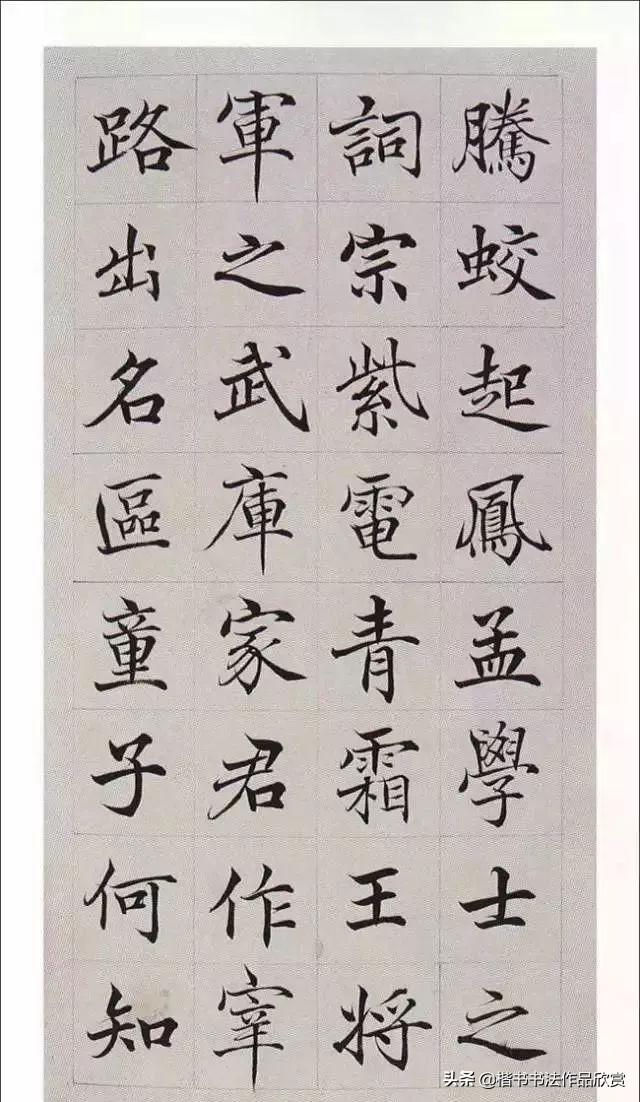 騰蛟起鳳孟學士之
詞宗紫電青霜王將
軍之武庫家君作宰
路出名區童子何知
头条 @楷书书法作品欣赏